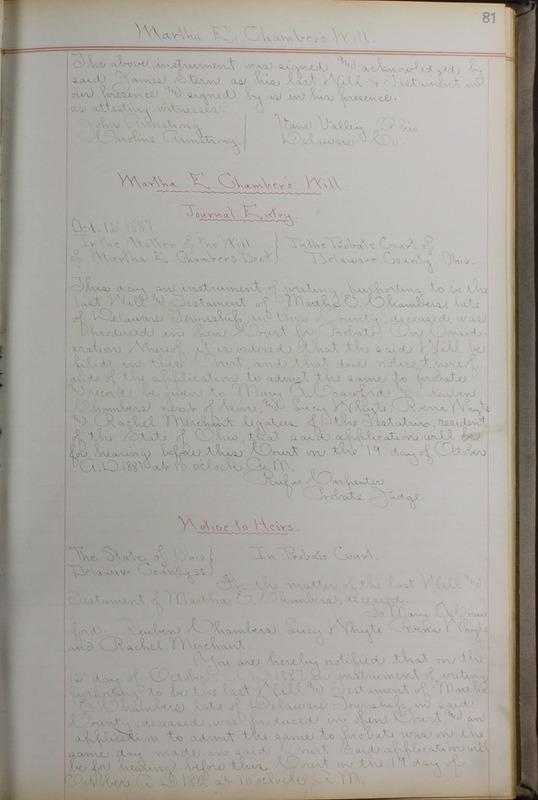 81
Martha E. Chambers Will.
The above instrument was signed and acknowledged by
said James Stern as his last Will & Testament in
our presence and signed by us in his presence.
as attesting witnesses.
John Armstrong Vans Valley Ohio
Caroline Armstrong Delaware Co.
Martha E. Chamber's Will
Journal Entry
Oct. 12" 1887
In the Matter of the Will In the Probate Court of
of Martha E. Chambers Decd Delaware County, Ohio.
This day an instrument of writing purporting to be the
last Will and Testament of Martha E. Chambers late
of Delaware Township in this County, deceased was
produced in open Court for Probate. On Consid-
eration Whereof, it is ordered that the said Will be
filed in this Court, and that due notice thereof
and of the application to admit the same to probate
& record, be given to Mary A. Crawford, Reuben
Chambers next of kin, and Lucy Whyte, Rena Whyte
and Rachel Merchant legatees of the Testatrix, resident
of the State of Ohio, that said application will be
for hearing before this Court on the 19" day of October
A.D. 1887 at 10 oclock A.M.
Rufus Carpenter
Probate Judge
Notice to Heirs.
The State of Ohio In Probate Court.
Delaware County ss
In the matter of the last Will and
Testament of Martha E. Chambers, deceased.
To Mary A. Craw
ford, Reuben Chambers Lucy Whyte Rena Whyte
and Rachel Merchant.
You are hereby notified that on the
12" day of October A.D. 1887 an instrument of writing
purporting to be the last Will and Testament of Martha
E. Chambers late of Delaware Township, in said
County, deceased, was produced in open Court and an
application to admit the same to probate was on the
same day made in said Court. Said application will
be for hearing before this Court on the 19" day of
October A.D. 1887 at 10 oclock, A.M.